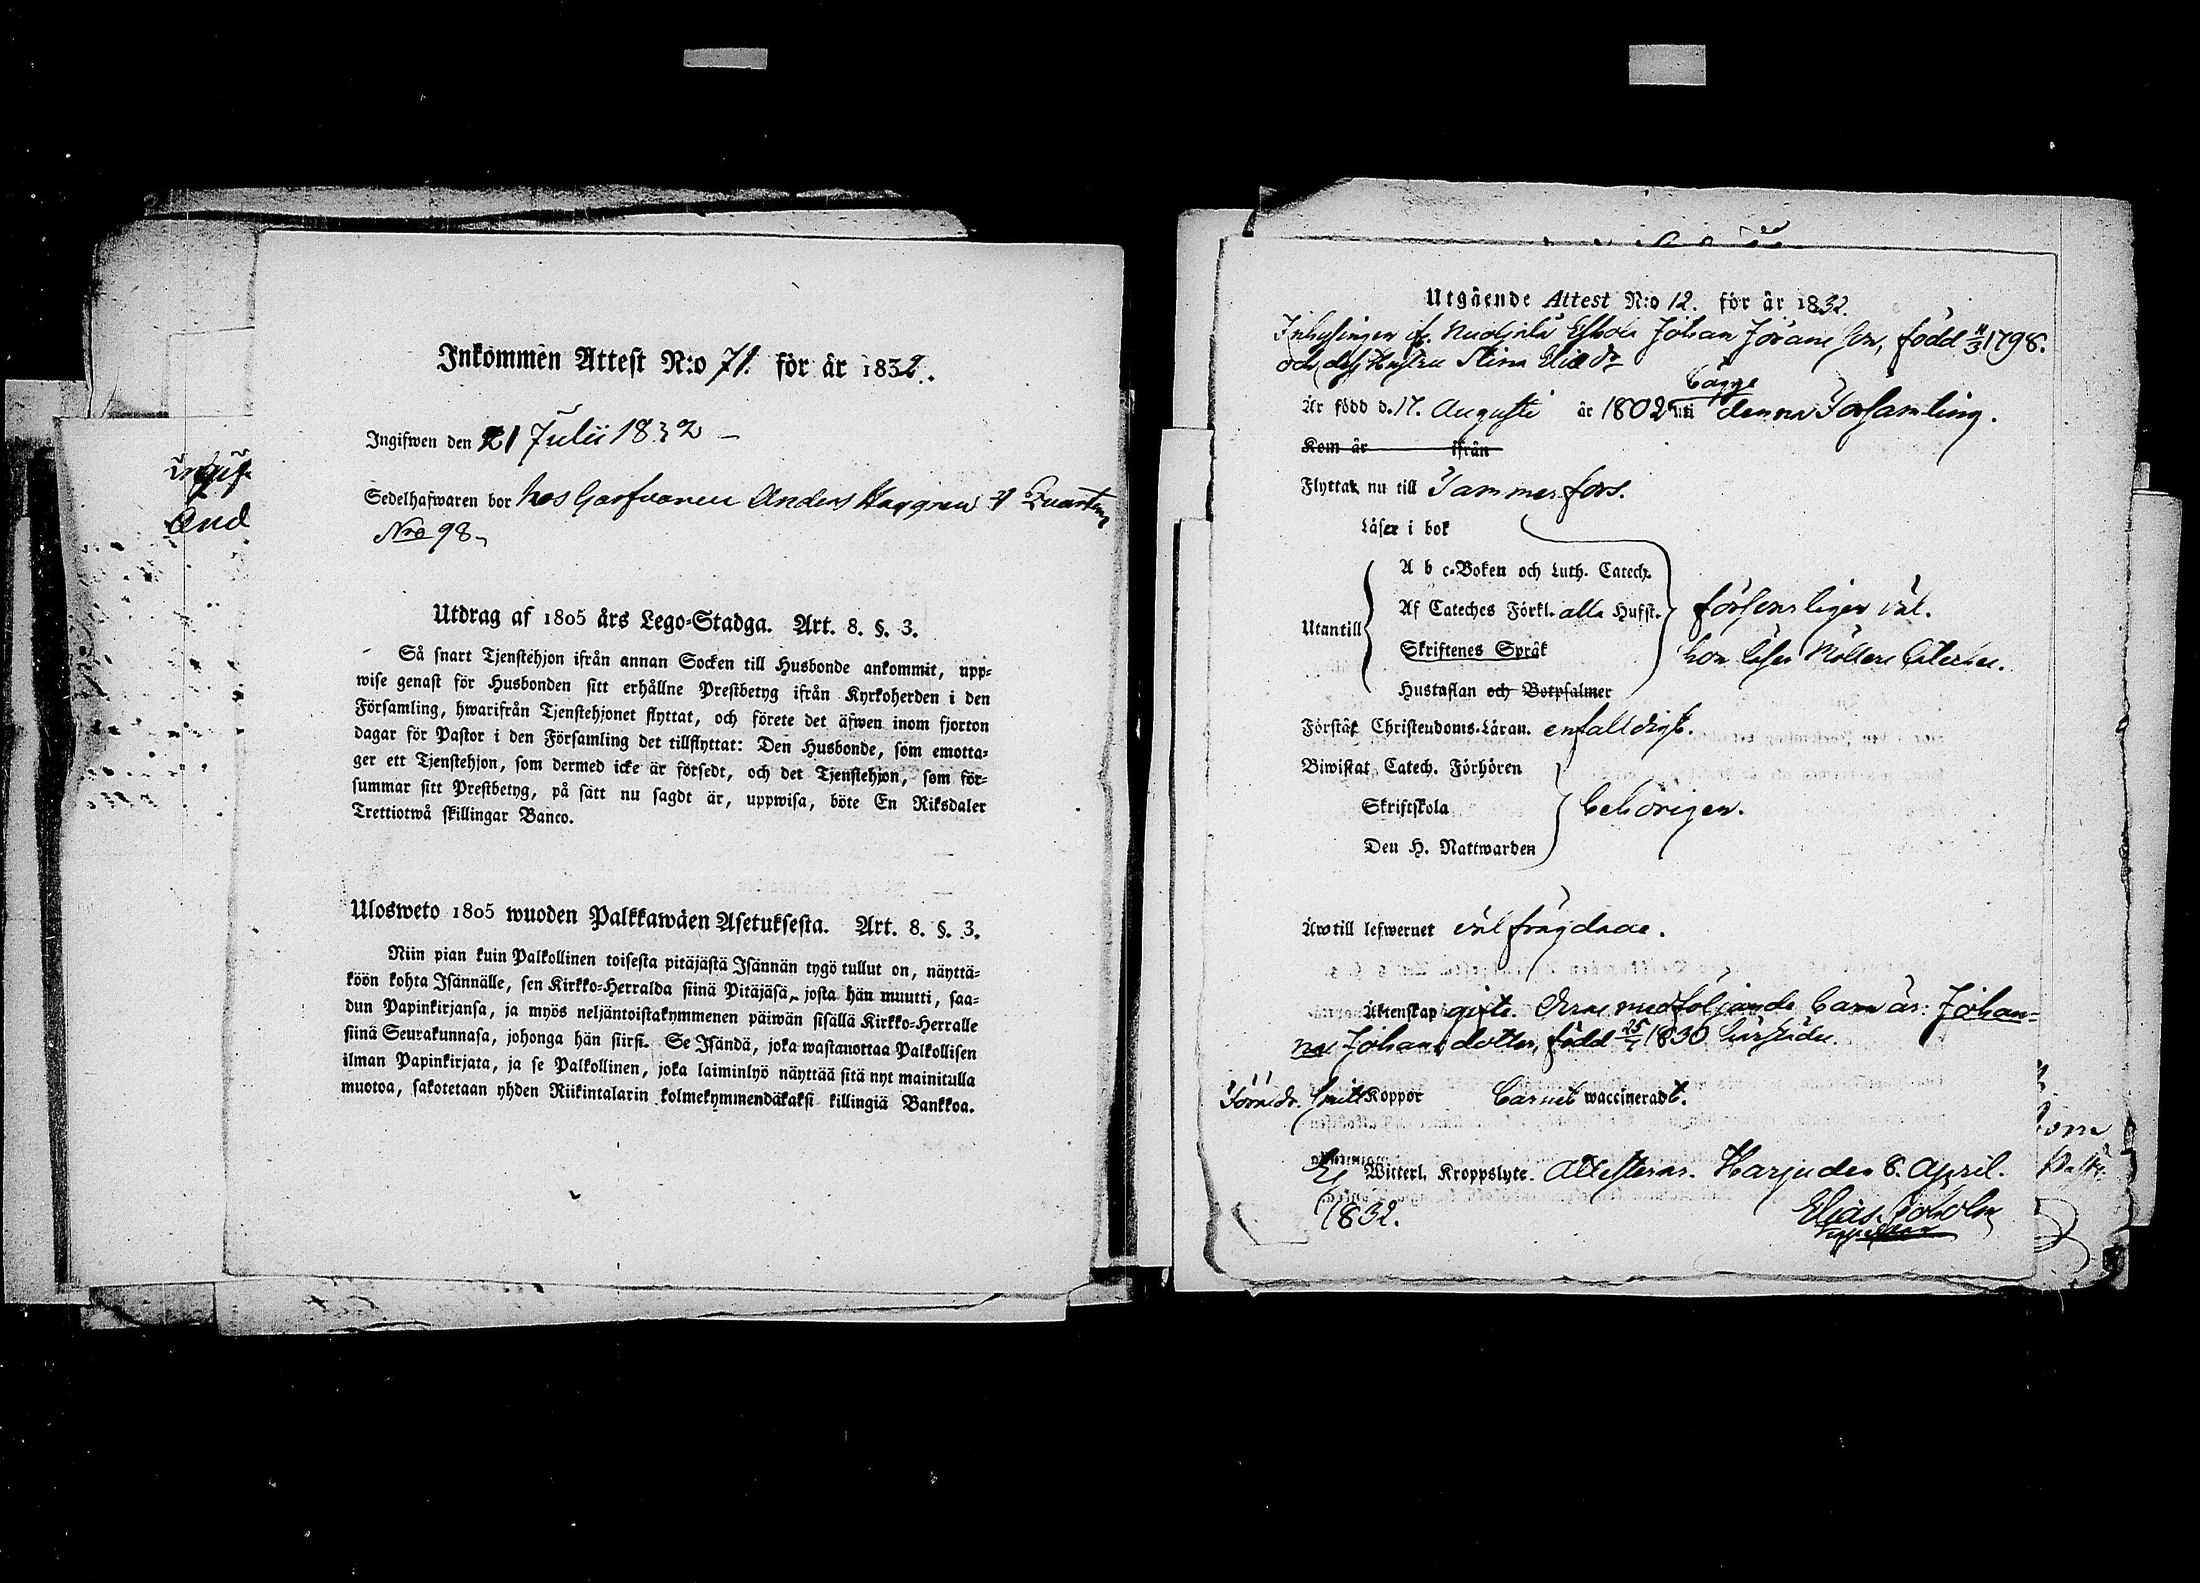 ingif-
And
Inkommen Attest N:o 71. för år 1832.
Ingifwen den 21 Julii 1832 –
Sedelhafwaren bor hos Garfvaren Anders Haggren 4 Quarteret
Nro 98
Utdrag af 1805 års Lego-Stadga. Art. 8. §. 3.
Så snart Tjenstehjon ifrån annan Socken till Husbonde ankommit, upp-
wise genast för Husbonden sitt erhållne Prestbetyg ifrån Kyrkoherden i den
Församling, hwarifrån Tjenstehjonet flyttat, och förete det äfwen inom fjorton
dagar för Pastor i den Församling det tillflyttat: Den Husbonde, som emotta-
ger ett Tjenstehjon, som dermed icke är försedt, och det Tjenstehjon, som för-
summar sitt Prestbetyg, på sätt nu sagdt är, uppwisa, böte En Riksdaler
Trettiotwå skillingar Banco.
Ulosweto 1805 wuoden Palkkawäen Asetuksesta. Art. 8. §. 3.
Niin pian kuin Palkollinen toisesta pitäjästä Isännän tygö tullut on, näyttä-
köön kohta Isännälle, sen Kirkko-Herralda siinä Pitäjäsä, josta hän muutti, saa-
dun Papinkirjansa, ja myös neljäntoistakymmenen päiwän sisällä Kirkko-Herralle
siinä Seurakunnasa, johonga hän siirsi. Se Isändä, joka wastanottaa Palkollisen
ilman Papinkirjata, ja se Palkollinen, joka laiminlyö näyttää sitä nyt mainitulla
muotoa, sakotetaan yhden Riikintalarin kolmekymmendäkaksi killingiä Bankkoa.
Utgående Attest N:o 12. för år 1832.
Inhysingen Johan Jöransson, född 11/3 1798.
och dess Hustru Stina Elia dr
Är född d. 17. Augusti år 1802 uti bägge denna Församling.
Kom år ifrån
Flyttat nu till Tammerfors.
Läser i bok
A b c-Boken och Luth. Catech.
Utantill Af Cateches Förkl. alla Hufst. försvarligen väl.
Skriftenes Språk hon läser Möllers Cateches.
Hustaflan och Botpsalmer
Förstår Christendoms-Läran. enfalldigt.
Biwistat Catech. Förhören
Skriftskola behörigen.
Den H. Nattwarden
Äwtill lefwernet välfrägdade.
Äktenskap gifte. Deras medföljande barn är: Johan-
na Johansdotter, född 25/7 1830 härstädes.
haft Koppor Barnet waccineradt.
Ej Witterl. Kroppslyte. Attesterar. Harju den 8. April.
1832.
Elias